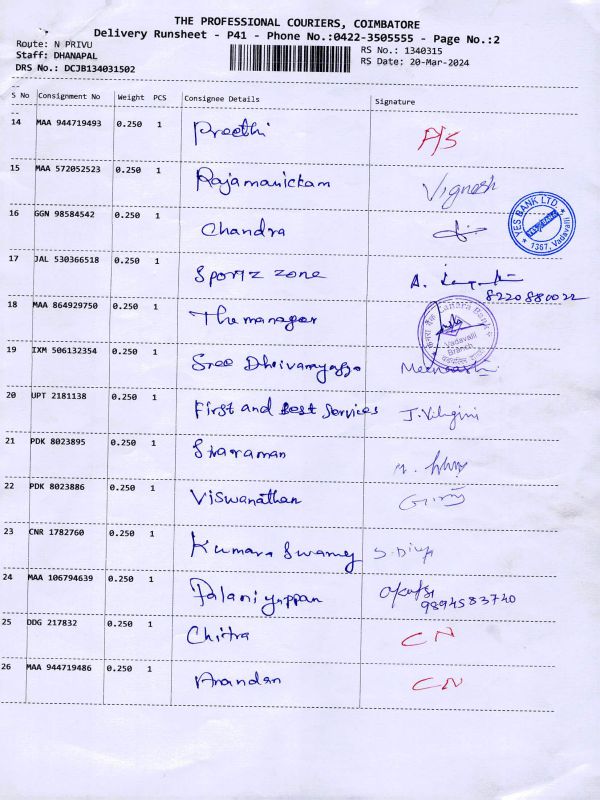 THE PROFESSIONAL COURIERS, COIMBATORE
Delivery Runsheet - P41 - Phone No.:0422-3505555 - Page No.:2
Route: N PRIVU
RS No.: 1340315
Staff: DHANAPAL
RS Date: 20-Mar-2024
DRS No.: DCJB134031502
S No Consignment No Weight PCS Consignee Details Signature
14 MAA 944719493 0.250 1 Preethi P/S
15 MAA 572052523 0.250 1 Rajamanickam Vignesh
16 GGN 98584542 0.250 1 Chandra
YES BANK LTD. 1367, Vadavalli
17 JAL 530366518 0.250 1 Sportz zone A.
8220880022
18 MAA 864929750 0.250 1 The manager
Canara Bank
Vadavalli
Branch
19 IXM 506132354 0.250 1 Sree Meenakshi
20 UPT 2181138 0.250 1 First and Best Services J.
21 PDK 8023895 0.250 1
22 PDK 8023886 0.250 1 Viswanathan
23 CNR 1782760 0.250 1 Kumara Swamy
24 MAA 106794639 0.250 1 Palaniyappan
9894583740
25 DDG 217832 0.250 1 Chitra CN
26 MAA 944719486 0.250 1 Anandan CN